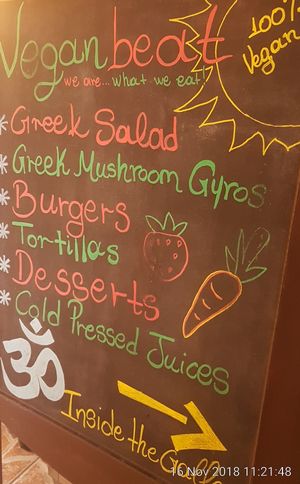 Vegan beat
we are... what we eat!
100%
Vegan
* Greek Salad
* Greek Mushroom Gyros
* Burgers
* Tortillas
* Desserts
* Cold Pressed Juices
ॐ
Inside the
16 Nov 2018 11:21:48